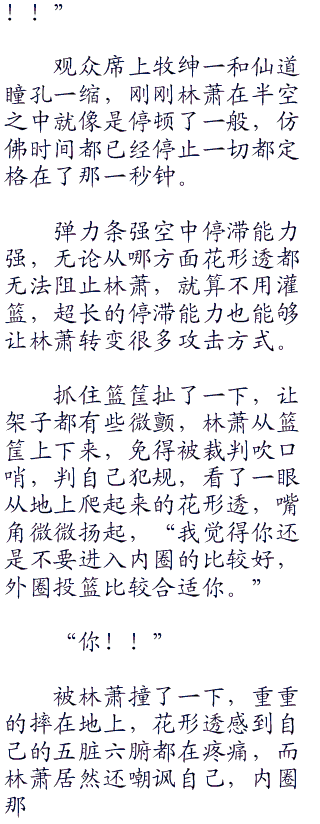 ！！”
观众席上牧绅一和仙道
瞳孔一缩，刚刚林萧在半空
之中就像是停顿了一般，仿
佛时间都已经停止一切都定
格在了那一秒钟。
弹力条强空中停滞能力
强，无论从哪方面花形透都
无法阻止林萧，就算不用灌
篮，超长的停滞能力也能够
让林萧转变很多攻击方式。
抓住篮筐扯了一下，让
架子都有些微颤，林萧从篮
筐上下来，免得被裁判吹口
哨，判自己犯规，看了一眼
从地上爬起来的花形透，嘴
角微微扬起，“我觉得你还
是不要进入内圈的比较好，
外圈投篮比较合适你。”
“你！！”
被林萧撞了一下，重重
的摔在地上，花形透感到自
己的五脏六腑都在疼痛，而
林萧居然还嘲讽自己，内圈
那